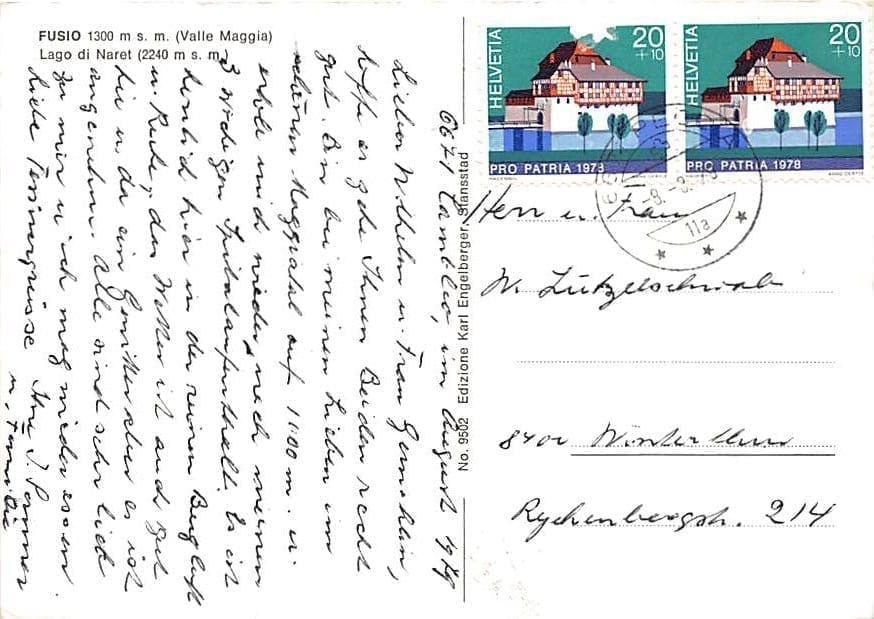 FUSIO 1300 m s. m. (Valle Maggia)
Lago di Naret (2240 m s. m.)
6671 im August 1979
Lieber Wilhelm u. Frau Gemahlin,
hoffe es gehe Ihnen Beiden recht
gut. Bin bei meinen Lieben im
schönen Maggiatal auf 1100 m. u.
erhole mich wieder, nach meinem
3 wöchigen Spitalaufenthalt. Es ist
herrlich hier in der reinen Bergluft
u. Ruhe, das Wetter ist auch gut
hie u. da ein Gewitter aber es ist
angenehm. Alle sind sehr lieb
zu mir u. ich mag wieder essen.
Liebe Tessinergrüsse Ihre J.
u. Familie
No. 9502 Edizione Karl Engelberger, Stansstad
HELVETIA 20+10
PRO PATRIA 1978
HELVETIA 20+10
PRO PATRIA 1978
11a
Herr u. Frau
W. Lützelschwab
8400 Winterthur
Rychenbergstr. 214